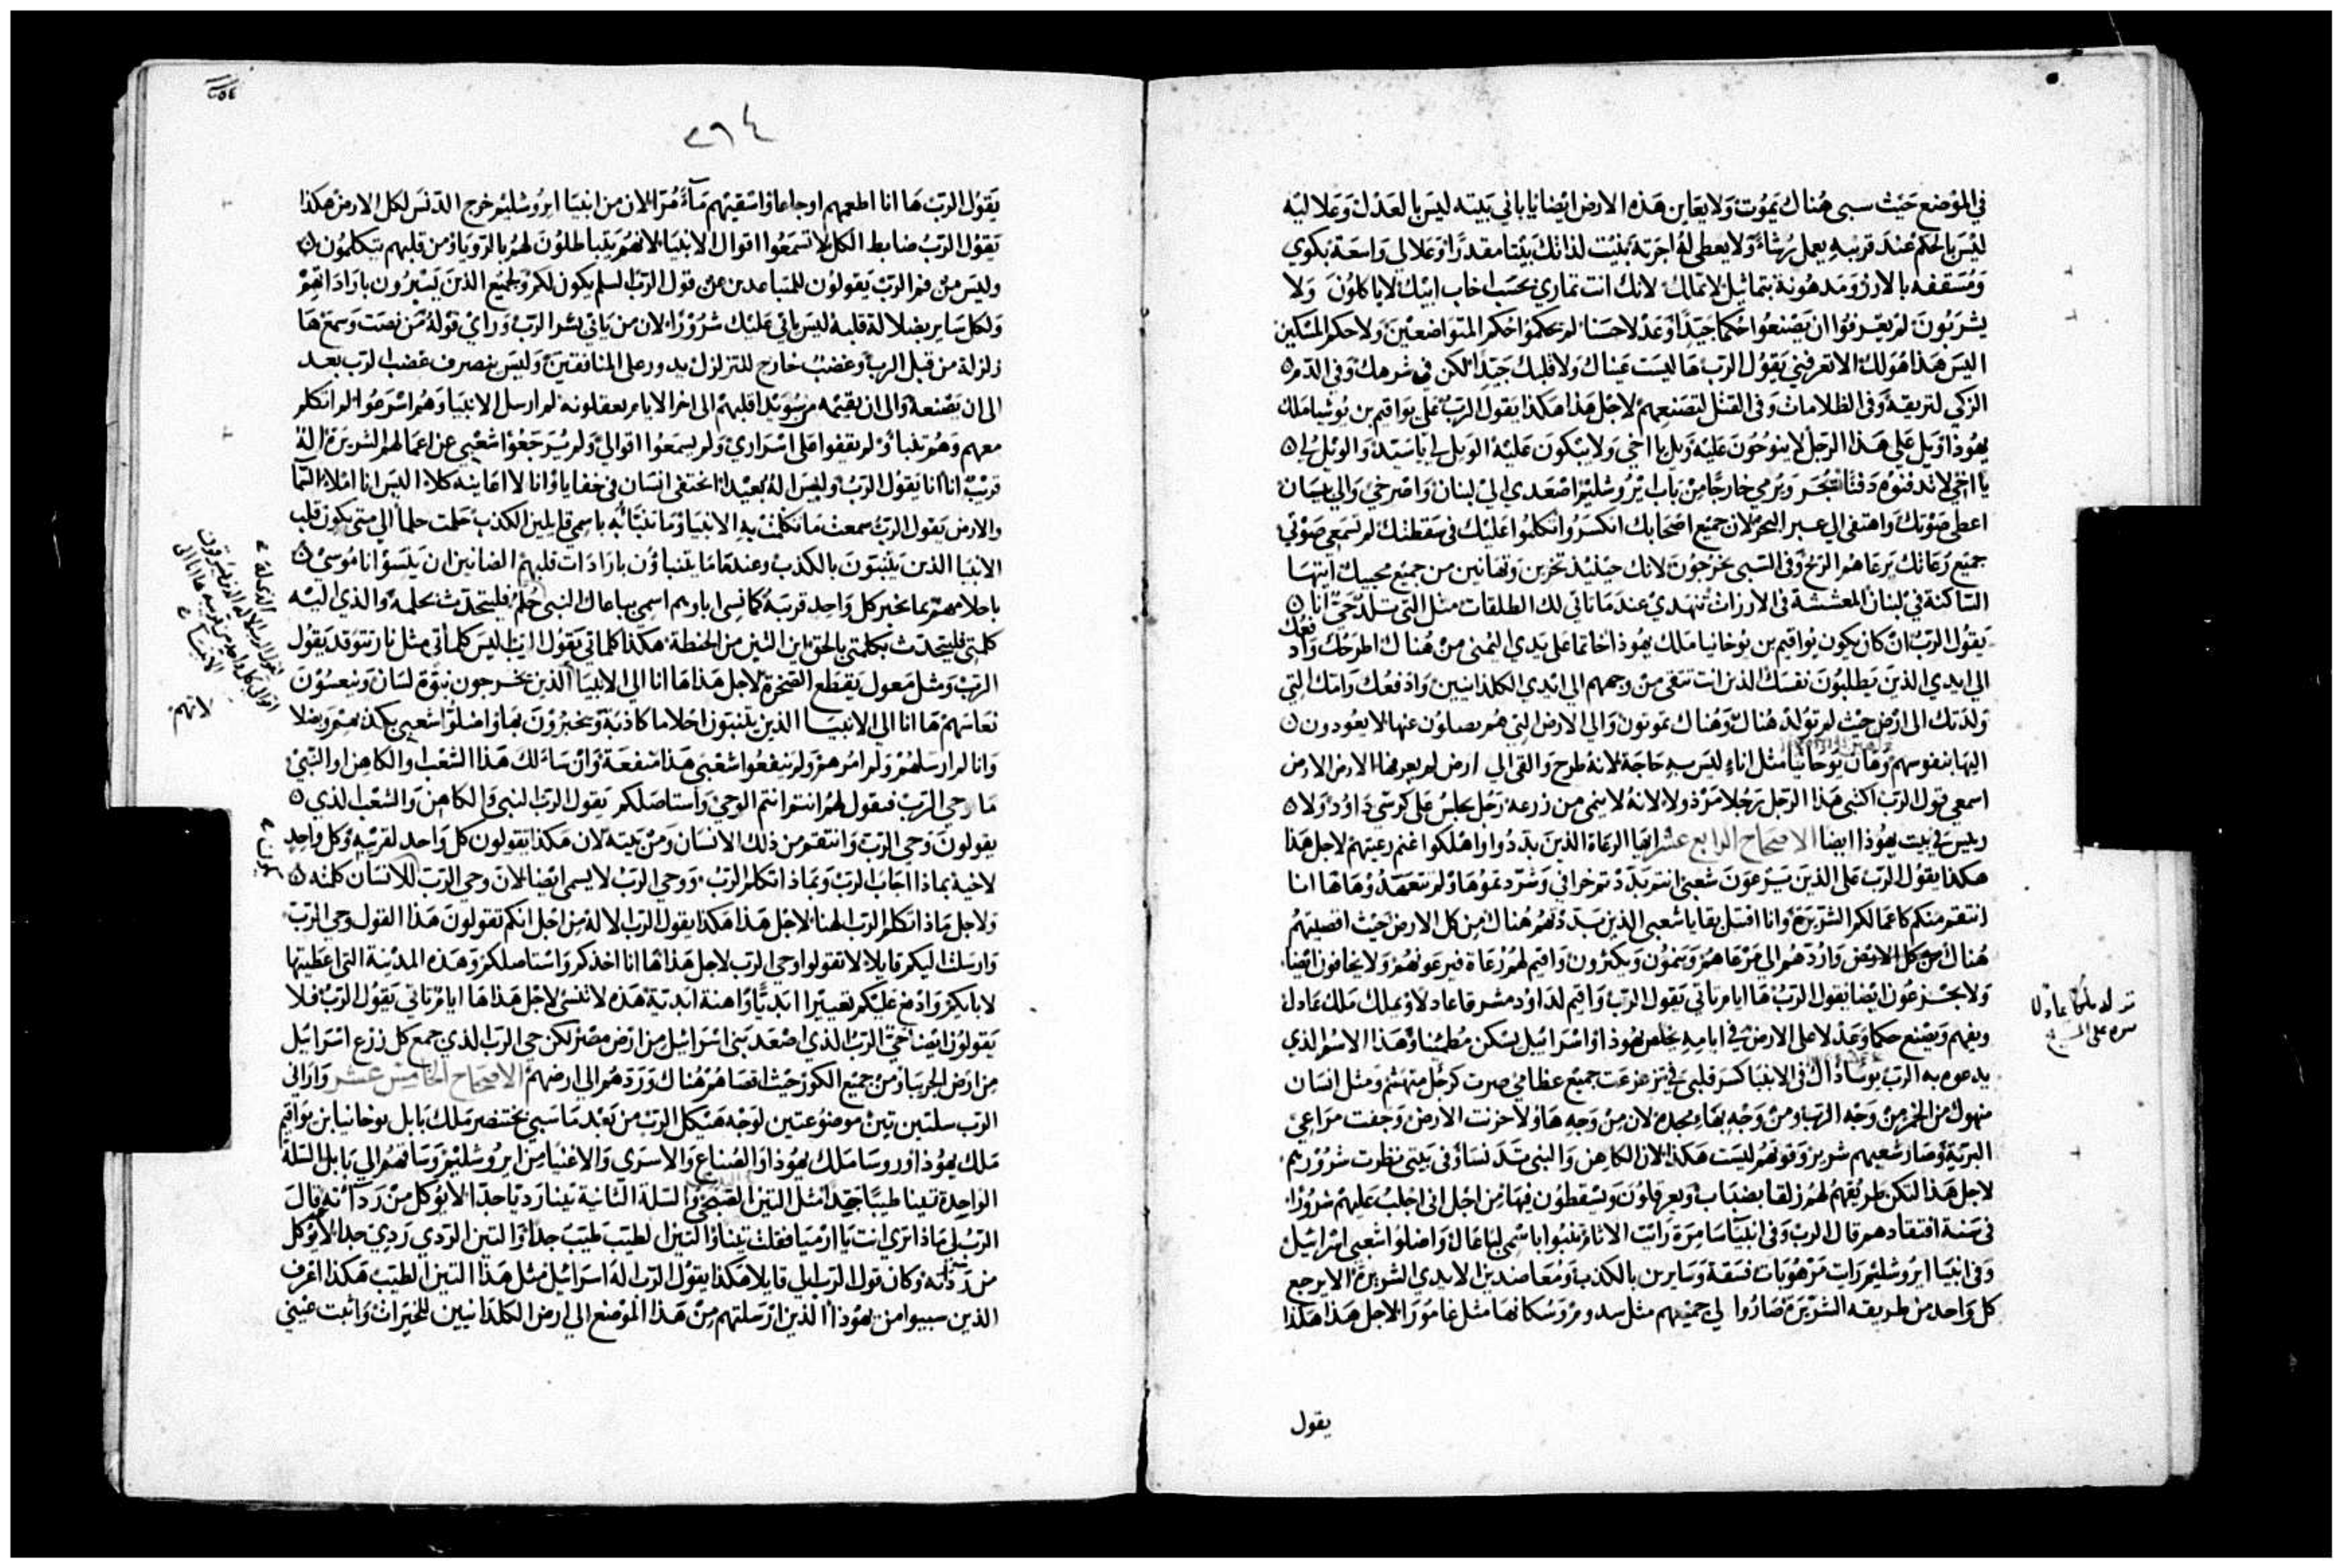 في الموضع حيث سبى هناك يموت ولا يعاين هذه الارض ايضا يا باني بيته ليس بالعدل وعلاليه
ليس بالحكم عند قريبه يعمل رشاء ولا يعطى له اجرته بنيت لذاتك بيتا مقدرا وعلالي واسعة بكوي
ومسقفه بالارز ومدهونة بتماثيل لا تملك لانك انت تماري بحسب اخاب ابيك لا ياكلون ولا
يشربون لم يعرفوا ان يصنعوا حكما جيدا وعدلا حسنا لم يحكموا حكم المتواضعين ولا حكم المسكين
اليس هذا هو لك الا تعرفني يقول الرب ها ليست عيناك ولا قلبك جيدا لكن في شرهك وفي الدم
الزكي لتريقه وفي الظلامات وفي القتل لتصنعهم لاجل هذا هكذا يقول الرب على يواقيم بن يوشيا ملك
يهوذا ويل على هذا الرجل لا ينوحون عليه ويل يا اخي ولا يبكون عليه الويل لي يا سيد والويل لي
يا اخي لا تدفنوه دفنا يتجر ويرمي خارجا من باب يروشليم اصعدي الي لبنان واصرخي والي بيسان
اعطى صوتك واهتفى الى عبر البحر لان جميع اصحابك انكسروا اتكلموا عليك في سقطتك لم تسمعي صوتي
جميع رعاتك يرعاهم الريح وفي السبى يخرجون لانك حينيذ تخزين وتهانين من جميع محبيك ايتها
الساكنة في لبنان المعششة في الارزات تنهدي عندما تاتي لك الطلقات مثل التى تلد حي انا
يقول الرب ان كان يكون يواقيم بن يوخانيا ملك يهوذا خاتما على يدي اليمنى من هناك اطرحك وادفعك
الي ايدي الذين يطلبون نفسك الذين انت تتقى من وجههم الى ايدي الكلدانيين وادفعك وامك التي
ولدتك الى ارض حيث لم تولد هناك وهناك تموتون والي الارض التي هم يصلون عنها لا يعودون
اليها بنفوسهم وهان يوخانيا مثل اناء ليس به حاجة لانه طرح والقى الي ارض لم يعرفها الارض الارض
اسمعي قول الرب اكتبى هذا الرجل رجلا مرذولا لانه لا ينمى من زرعه رجل يجلس على كرسي داوود ولا
رييس في بيت يهوذا ايضا الاصحاح الرابع عشر ايها الرعاة الذين بددوا واهلكوا غنم رعيتهم لاجل هذا
هكذا يقول الرب على الذين يرعون شعبي انتم بددتم خرافي وشردتموها ولم تتعهدوها ها انا
انتقم منكم كاعمالكم الشريرة وانا اقتبل بقايا شعبى الذين بددتهم هناك من كل الارض حيث اقصيتهم
هناك من كل الارض واردهم الى مرعاهم وينمون ويكثرون واقيم لهم رعاة فيرعونهم ولا يخافون ايضا
ولا يجزعون ايضا يقول الرب ها ايام تاتي يقول الرب واقيم لداوود مشرقا عادلا ويملك ملك عادل
ويفهم ويصنع حكما وعدلا على الارض في ايامه يخلص يهوذا واسرائيل يسكن مطمئنا وهذا الاسم الذي
يدعوه به الرب يوساداك في الانبيا كسر قلبي في تزعزعت جميع عظامي صرت كرجل متهشم ومثل انسان
منهوك من الخمر من وجه الرب ومن وجه بهاء مجده لان من وجه هاولا حزنت الارض وجفت مراعي
البرية وصار شعيهم شرير وقوتهم ليست هكذا لان الكاهن والنبى تدنسا وفى بيتى نظرت شرورهم
لاجل هذا لتكن طريقهم لهم زلقا بضباب ويعرقلون ويسقطون فيها من اجل اني اجلب عليهم شرورا
في سنة افتقادهم قال الرب وفي انبياء سامرة رايت الاثام تنبوا باسمي لباعال واضلوا شعبي اسرائيل
وفي انبيا ايروشليم رايت مرهوبات فسقة وسايرين بالكذب ومعاضدين الايدي الشريرة الا يرجع
كل واحد من طريقه الشريرة صاروا لي جميعهم مثل سدوم وسكانها مثل غامورا لاجل هذا هكذا
يقول
٢٦٤
يقول الرب ها انا اطعمهم اوجاعا واسقيهم ماء مرا لان من انبيا ايروشليم خرج الدنس لكل الارض هكذا
يقول الرب ضابط الكل لا تسمعوا اقوال الانبيا لانهم يتباطلون لهم بالرويا ومن قلبهم يتكلمون
وليس من فم الرب يقولون للمتباعدين عن قول الرب السلم يكون لكم ولجميع الذين يسيرون باراداتهم
ولكل ساير بضلالة قلبه ليس ياتي عليك شرورا لان من ياتي بسر الرب وراي قوله من نصت وسمع ها
زلزلة من قبل الرب وغضب خارج للتزلزل يدور على المنافقين وليس ينصرف غضب الرب بعد
الى ان يصنعه والى ان يقيمه من سويدا قلبهم الى اخر الايام يعقلونه لم ارسل الانبيا وهم اسرعوا لم اتكلم
معهم وهم تنبأو ولو يقفوا على اسراري ولم يسمعوا اقوالي ولم يرجعوا شعبي عن اعمالهم الشريرة اله
قريب انا انا يقول الرب وليس اله بعيد اذا اختفى انسان في خفايا وانا لا اعاينه كلا اليس انا املاء السما
والارض يقول الرب سمعت ما تكلمت به الانبيا وما تنبأت به باسمي قايلين الكذب حلمت حلما الى متى يكون قلب
الانبيا الذين يتنبون بالكذب وعندها ما يتنباون بارادات قلبهم الضانين ان ينسوا ناموسى
باحلامهم بما يخبر كل واحد قريبه كما نسى اباوهم اسمي بباعال النبى حلم فليتحدث بحلمه والذي اليه
كلمتي فليتحدث بكلمتي بالحق اين التبن من الحنطة هكذا كلماتي يقول الرب اليس كلماتي مثل نار تتوقد يقول
الرب ومثل معول يقطع الصخرة لاجل هذا ها انا الى الانبيا الذين يخرجون نبوة لسان وينعسون
نعاسهم ها انا الي الانبيا الذين يتنبون احلاما كاذبة ويخبرون بها واضلوا شعبي بكذبهم وبضلا
وانا لم ارسلهم ولم امرهم ولم ينفعوا شعبي هذا منفعة وان سالك هذا الشعب او الكاهن او النبي
ما وحي الرب فتقول لهم انتم انتم الوحي واستاصلكم يقول الرب النبي والكاهن والشعب الذي
يقولون وحي الرب وانتقم من ذلك الانسان ومن بيته لان هكذا يقولون كل واحد لقريبه وكل واحد
لاخيه بماذا اجاب الرب وبماذا تكلم الرب ووحي الرب لا يسمى ايضا لان وحي الرب للانسان كلمته
ولاجل ماذا تكلم الرب الهنا لاجل هذا هكذا يقول الرب الاله من اجل انكم تقولون هذا القول وحي الرب
وارسلت اليكم قايلا لا تقولوا وحي الرب لاجل هذا ها انا اخذكم واستاصلكم وهذه المدينة التى اعطيتها
لابايكم وادفع عليكم تعييرا ابديا واهنة ابدية هذه لا تنسى لاجل هذا ها ايام تاتي يقول الرب فلا
يقولون ايضا حي الرب الذي اصعد بني اسرائيل من ارض مصر لكن حي الرب الذي جمع كل زرع اسرائيل
من ارض الجربيا ومن جميع الكور حيث اقصاهم هناك وردهم الى ارضهم الاصحاح الخامس عشر واراني
الرب سلتين تين موضوعتين لوجه هيكل الرب من بعد ما سبى بختنصر ملك بابل يوخانيا بن يواقيم
ملك يهوذا وروسا ملك يهوذا والصناع والاسرى والاغنيا من ايروشليم وساقهم الي بابل السلة
الواحدة تينا طيبا جدا مثل التين الصيفي والسلة الثانية تينا رديا جدا لا يوكل من رداته قال
الرب لي ماذا ترى انت يا ارميا فقلت تينا والتين الطيب طيب جدا والتين الردي ردي جدا لا يوكل
من رداته وكان قول الرب الي قايلا هكذا يقول الرب اله اسرائيل مثل هذا التين الطيب هكذا اعرف
الذين سبيوا من يهوذا الذين ارسلتهم من هذا الموضع الى ارض الكلدانيين للخيرات واثبت عيني